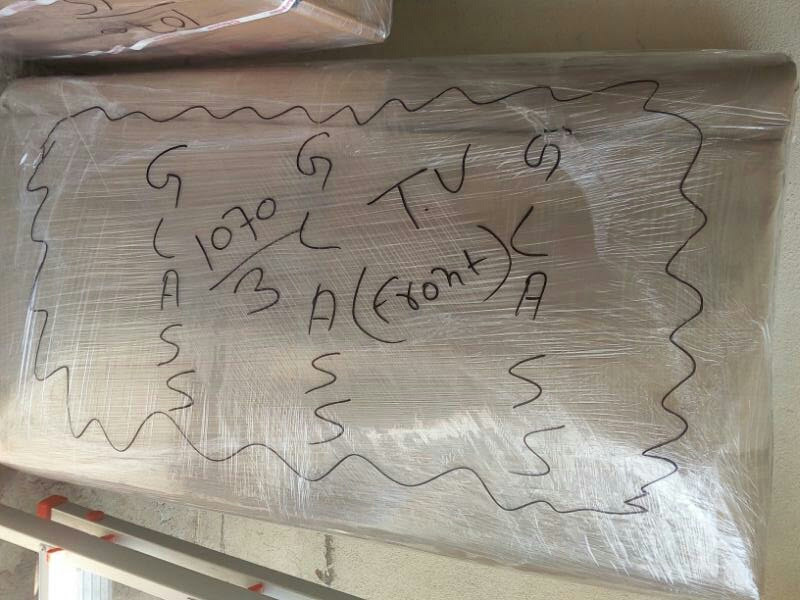 GLASS
1070/3
GLASS
T.V
(Front)
GLASS